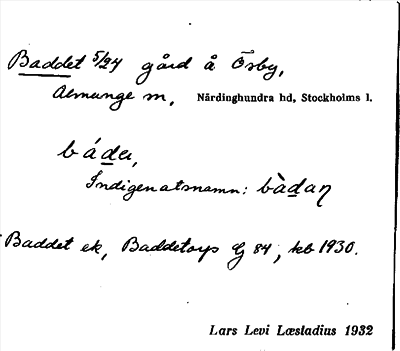 Baddet 5/24 gård å Ösby,
Almunge sn, Närdinghundra hd, Stockholms l.
bádet,
Indigenatsnamn: bàdaɳ
Baddet ek, Baddetorp Gj 84, kb 1930.
Lars Levi Læstadius 1932